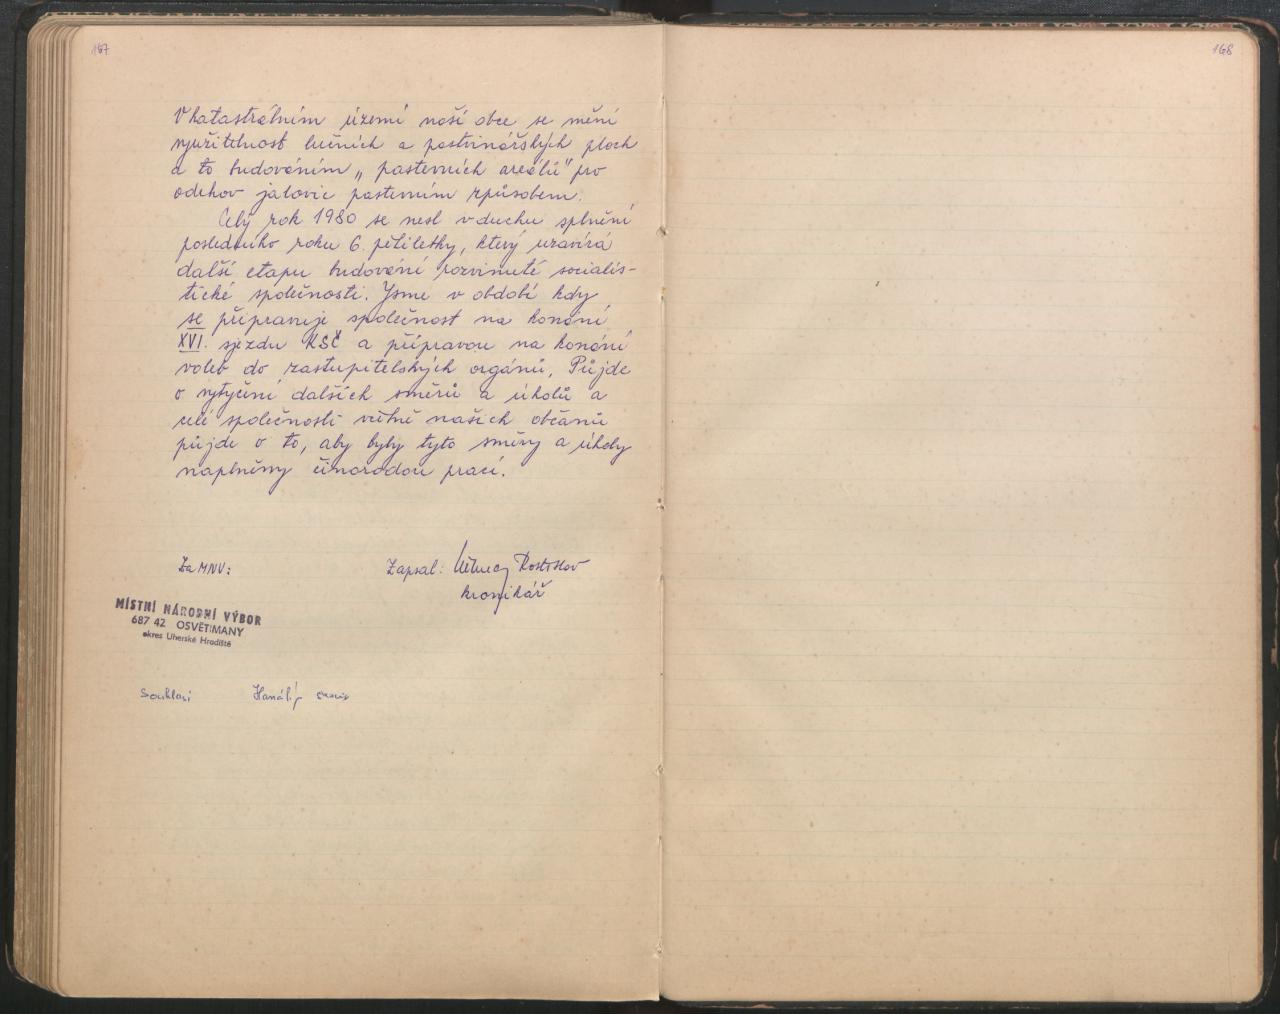 167
V katastrálním území naší obce se mění
využitelnost lučních a pastvinářských ploch
a to budováním „pastevních areálů" pro
odchov jalovic pastevním způsobem.
Celý rok 1980 se nesl v duchu splnění
posledního roku 6. pětiletky, který uzavírá
další etapu budování rozvinuté socialis-
tické společnosti. Jsme v období kdy
se připravuje společnost na konání
XVI. sjezdu KSČ a přípravou na konání
voleb do zastupitelských orgánů. Půjde
o vytyčení dalších směrů a úkolů a
celé společnosti včetně našich občanů
půjde o to, aby byly tyto směry a úkoly
naplněny činorodou prací.
Za MNV:
Zapsal: Němec Rostislav
kronikář
MÍSTNÍ NÁRODNÍ VÝBOR
687 42 OSVĚTIMANY
okres Uherské Hradiště
Souhlasí
168